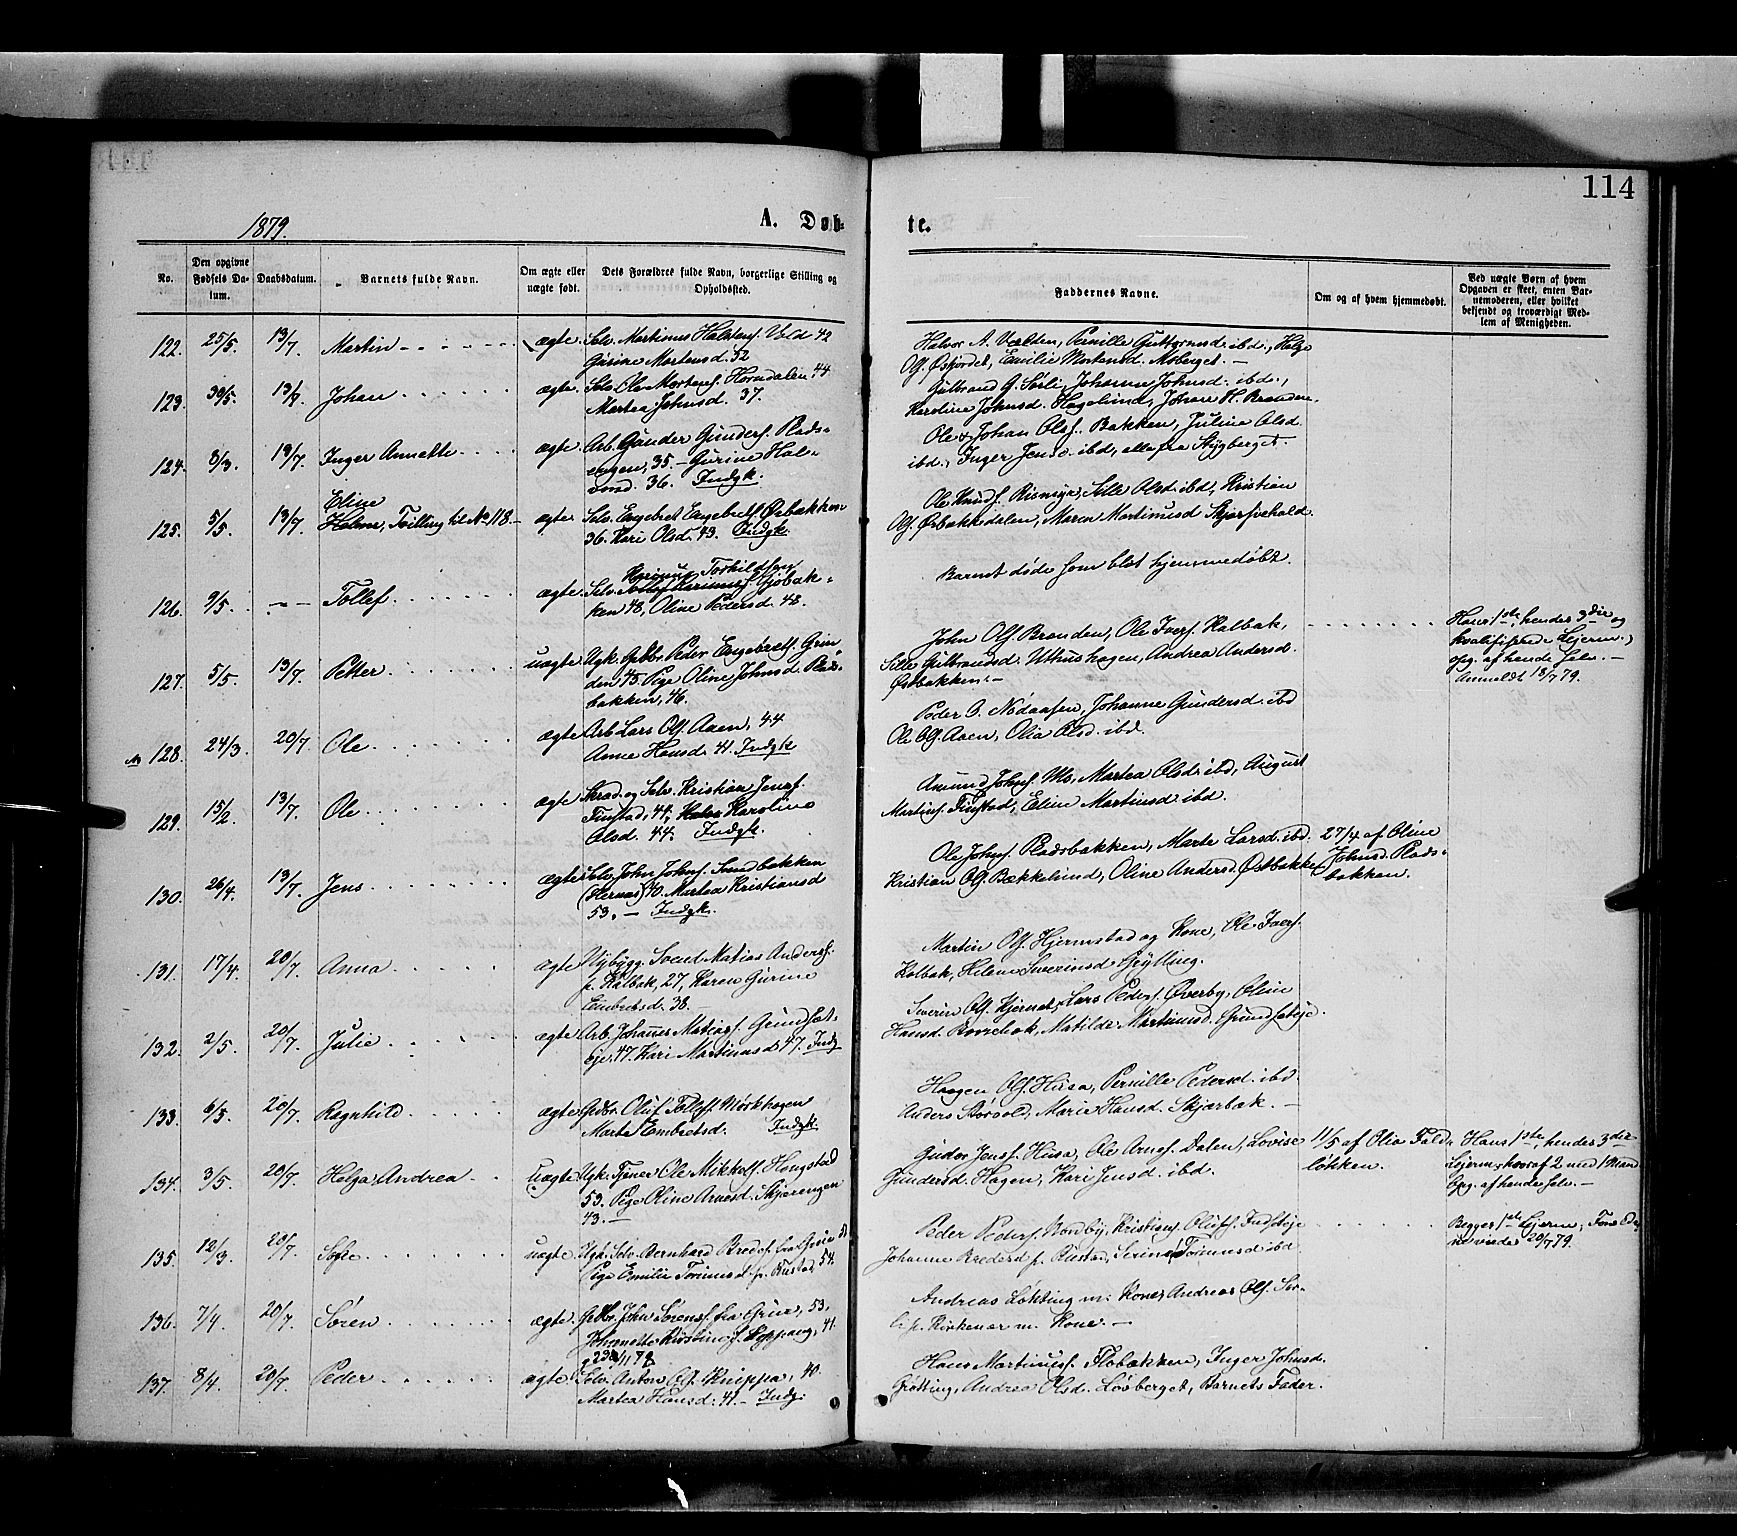 114
1879.
A. Døb-
te.
No.
Den opgivne Fødsels Da-tum.
Daabsdatum.
Barnets fulde Navn.
Om ægte eller uægte født.
Dets Forældres fulde Navn, borgerlige Stilling og Opholdssted.
Faddernes Navne.
Om og af hvem hjemmedøbt.
Ved uægte Børn af hvem Opgaven er skeet, enten Bar-nemoderen, eller hvilket bekjendt og troværdigt Med-lem af Menigheden.
122. 25/5. 13/7 Martin ægte Selv. Martinus Halstens. Vold 42
Gurine Mortensd. 52
Halvor A. Vælten, Pernille Guttormsd ibd., Helge
Ols. Østjordet, Emilie Mortensd. Moberget. —
123. 30/5. 13/7 Johan ægte Selv. Ole Mortens. Horndalen, 44
Martea Johnsd. 37.
Gulbrand G. Sørli, Johanne Johnsd. ibd.,
Karoline Johnsd. Hagelund, Johan H. Branden.
124. 3/3. 13/7 Inger Annette ægte Arb. Gunder Gunders. Plads-
engen, 35. — Gurine Hal-
vorsd. 36. Indgk.
Ole & Johan Ols. Bakken, Juline Olsd
ibd., Inger Jensd. ibd, alle fra Stygberget.
125. 5/5. 13/7 Eline
Tvilling til No 118. — ægte Selv. Engebret Engebrets. Øsbakken
36. Kari Olsd. 43. Indgk
Ole Knuds. Rismyr, Sille Olsd. ibd, Kristian
Ols. Øsbakkdalen, Maren Martinusd Skjærsvehold.
126. 9/5. - - - Tollef ægte Torkildsen
Selv. Gjøbak-
ken 48, Oline Pedersd. 48.
Barnet døde som blot hjemmedøbt.
127. 5/5. 13/7 Petter uægte Ugk. Gdbr. Peder Engebrets. Grin-
den 45. Pige Oline Johnsd. Plads-
bakken, 46.
John Ols. Branden, Ole Ivers. Kalbak,
Sille Gulbrandsd. Uthushagen, Andrea Andersd.
Østbakken. —
Hans 1ste, hendes 3die og
kvalificerede Leierm.,
opg. af hende selv. —
Anmeldt 13/7 79.
128. 24/3. 20/7. Ole ægte Arb. Lars Ols. Aaen, 44
Anne Hansd. 41. Indgk
Peder O. Nødaasen, Johanne Gundersd. ibd
Ole Ols. Aaen, Olia Olsd. ibd.
129. 15/2. 13/7. Ole ægte Skræd. og Selv. Kristian Jens.
Finstad, 44, Karoline
Olsd. 44. Indgk.
Amund Johns. Mo, Martea Olsd. ibd, August
Martins. Finstad, Eline Martinsd ibd.
130. 26/4. 13/7. Jens ægte Selv. John Johns. Sundbakken
(Hernæs) 40. Martea Kristiansd
53. — Indgk.
Ole Johns. Pladsbakken, Marte Larsd. ibd.
Kristian Ols. Bækkelund, Oline Andersd. Østbakken
27/4 af Oline
Johnsd. Plads-
bakken.
131. 17/4. 20/7. Anna ægte Nybygg. Svend Matias Anders.
p. Kalbak, 27, Karen Gurine
Embretsd. 38. —
Martin Ols. Hjermstad og Kone, Ole Ivers.
Kalbak, Helene Severinsd Gylling.
132. 2/5. 20/7. Julie ægte Arb. Johannes Matias. Grundset-
eje, 47. Kari Martinusd 47. Indg
Severin Ols. Hjernet, Lars Peders. Øverby, Oline
Hansd. Rovebak, Matilde Martinusd. Grundseteje.
133. 6/5. 20/7. Ragnhild ægte Gdbr. Oluf Tollefs. Mørkhagen
Marte Embretsd. Indgk.
Haagen Ols. Husa, Pernille Pedersd. ibd.
Anders Storvold, Marie Hansd. Skjærbak. —
134. 3/5. 20/7. Helga Andrea uægte Ugk. Tjener Ole Mikkels. Hengstad
53. Pige Oline Arnesd. Skjerengen
43. —
Gudor Jens. Husa, Ole Arnes. Dalen, Lovise
Gundersd. Hagen, Kari Jensd. ibd.
11/5 af Olia Fald-
løkken.
Hans 1ste, hendes 3die
Leierm. hvoraf 2 med 1 Mand
Opg. af hende selv. —
135. 12/3. 20/7. Sofie uægte Ugk. Selv. Bernhard Bredes. fra Grue 51
Pige Emilie Torinusd. p. Rustad, 54.
Peder Peders. Nordby, Kristians Olufs. Indseteje
Johanne Bredesd p. Rustad, Serine Torinusd ibd
Begges 1ste Leierm,
29/7 79.
136. 7/4. 20/7. Søren ægte Gdbr. John Sørens. fra Grue, 53.
41.
Andreas Løkting m. Kone, Andreas Ols. Sør-
li p. Kirkenær m. Kone. —
137. 8/4. 20/7. Peder ægte Selv. Anton Ols. Knippa, 40.
Martea Hansd. 41. — Indg.
Hans Martinus. Flobækken, Inger Johnsd.
Grøtting, Andrea Olsd. Løvberget, Barnets Fader.